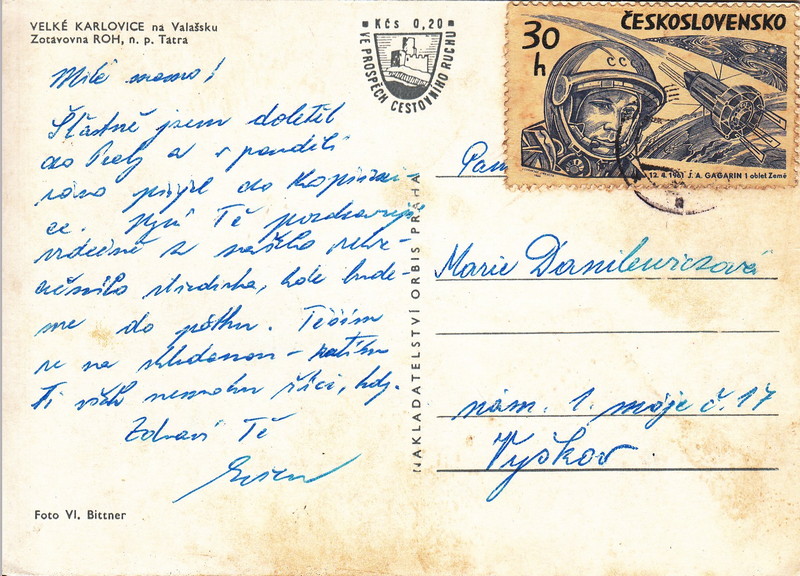 VELKÉ KARLOVICE na Valašsku
Zotavovna ROH, n. p. Tatra
Milá mamo!
Šťastně jsem doletěl
do a v pondělí
ráno přijel do
ce. Nyní Tě pozdravuji
srdečně z našeho rekre-
ačního střediska, kde bude-
me do pátku. Těším
se na shledanou – zatím
Ti však nemohu říci, kdy.
Zdraví Tě
Foto Vl. Bittner
NAKLADATELSTVÍ ORBIS PRAHA
Kčs 0,20
VE PROSPĚCH CESTOVNÍHO RUCHU
ČESKOSLOVENSKO
30
h
CCC
12. 4. 1961 J. A. GAGARIN 1 oblet Země
Marie Danilewiczová
nám. 1. máje č. 17
Vyškov